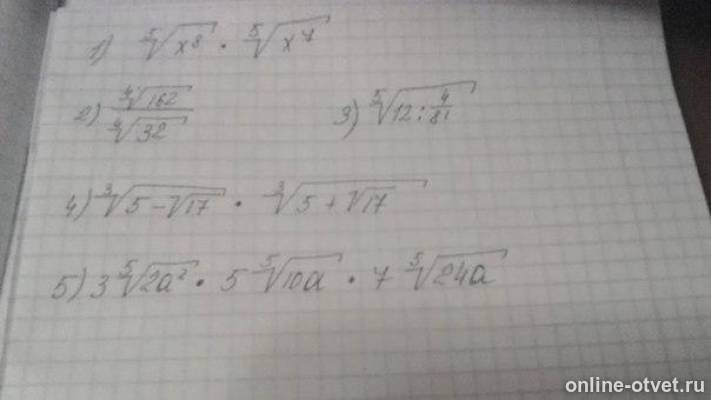 1) ⁵√x⁸ · ⁵√x⁷
2) ⁴√162 / ⁴√32
3) ⁵√12 : 4/81
4) ³√5 - √17 · ³√5 + √17
5) 3 ⁵√2a² · 5 ⁵√10a · 7 ⁵√24a
online-otvet.ru